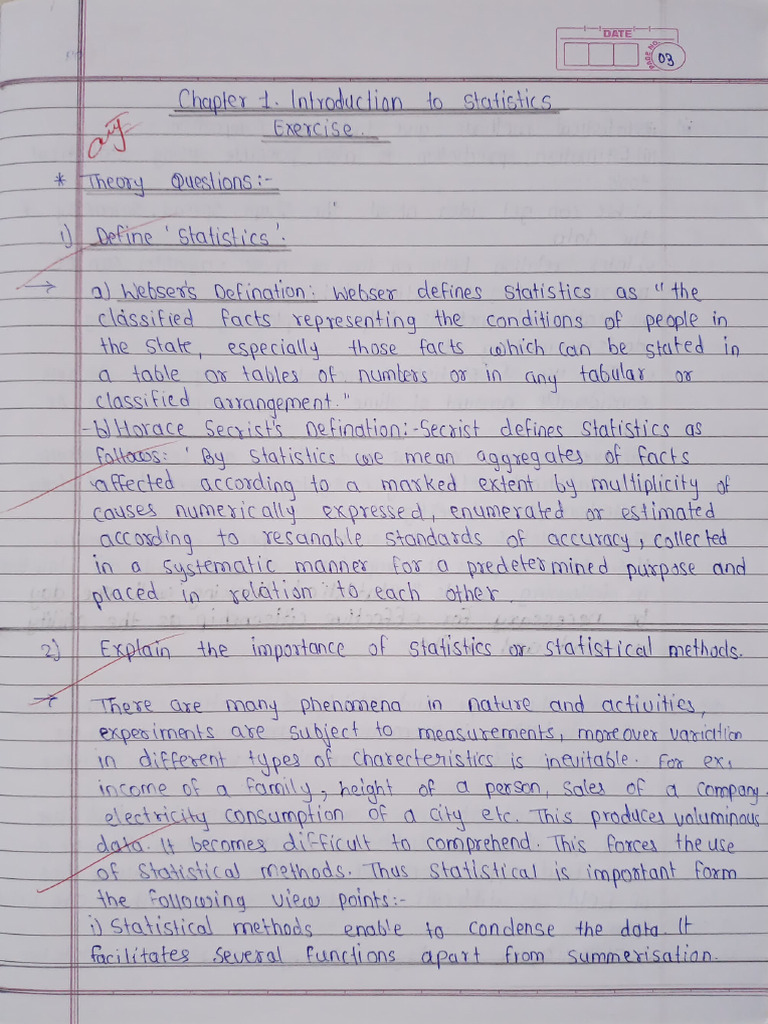 DATE
PAGE NO.
03
Chapter 1. Introduction to Statistics
Exercise.
* Theory Questions:-
1) Define 'Statistics'.
→ a) Webser's Defination: Webser defines Statistics as "the
classified facts representing the conditions of people in
the State, especially those facts which can be stated in
a table or tables of numbers or in any tabular or
classified arrangement."
-b) Horace Secrist's Defination:-Secrist defines Statistics as
follows: 'By Statistics we mean aggregates of facts
affected according to a marked extent by multiplicity of
causes numerically expressed, enumerated or estimated
according to resanable standards of accuracy, collected
in a systematic manner for a predetermined purpose and
placed in relation to each other.
2) Explain the importance of statistics or statistical methods.
→ There are many phenomena in nature and activities,
experiments are subject to measurements, moreover variation
in different types of charecteristics is inevitable. For ex,
income of a family, height of a person, Sales of a company,
electricity consumption of a city etc. This produces voluminous
data. It becomes difficult to comprehend. This forces the use
of Statistical methods. Thus Statistical is important form
the following view points:-
i) Statistical methods enable to condense the data. It
facilitates several functions apart from summerisation.